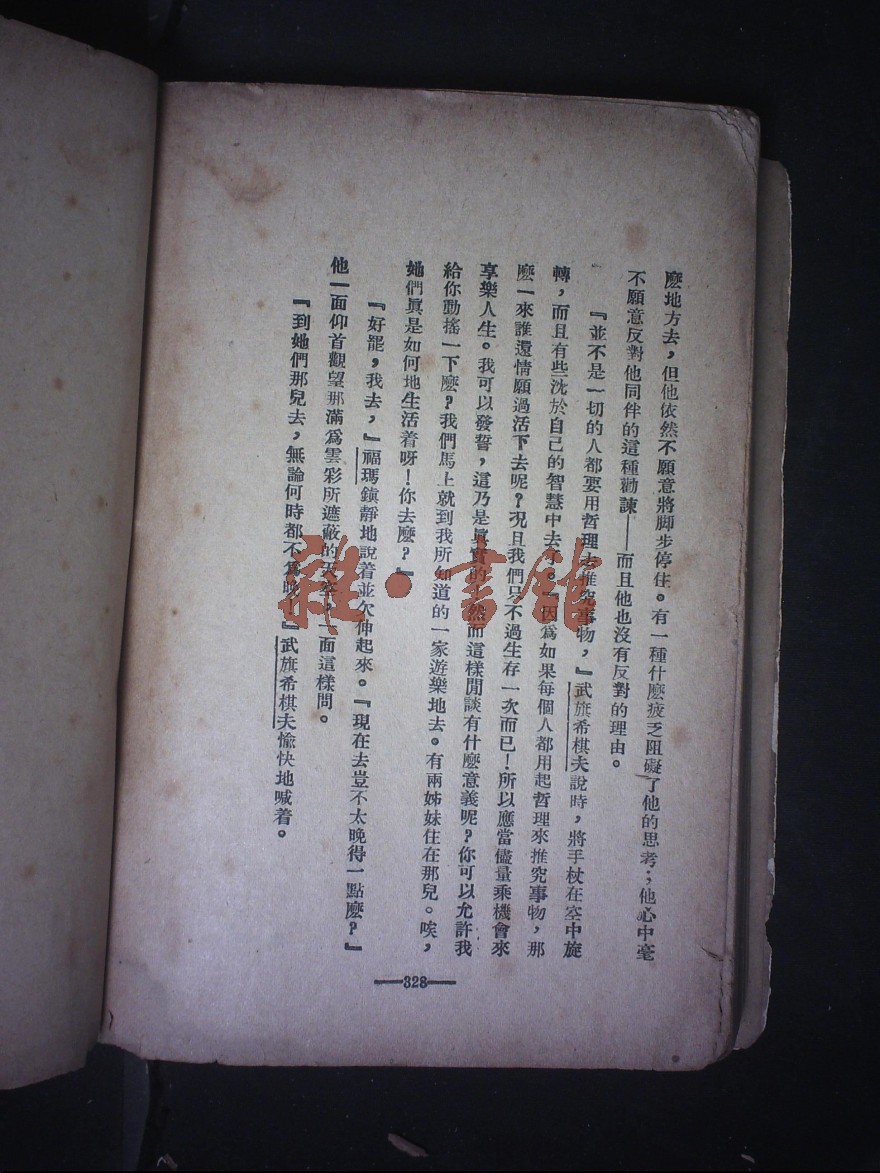 麽地方去，但他依然不願意將脚步停住。有一種什麽疲乏阻礙了他的思考；他心中毫
不願意反對他同伴的這種勸諫——而且他也沒有反對的理由。
『並不是一切的人都要用哲理去推究事物，』武旗希棋夫說時，將手杖在空中旋
轉，而且有些沈於自己的智慧中去了。『因爲如果每個人都用起哲理來推究事物，那
麽一來誰還情願過活下去呢？况且我們只不過生存一次而已！所以應當儘量乘機會來
享樂人生。我可以發誓，這乃是眞實的。然而這樣閒談有什麽意義呢？你可以允許我
給你動搖一下麽？我們馬上就到我所知道的一家遊樂地去。有兩姊妹住在那兒。唉，
她們眞是如何地生活着呀！你去麽？』
『好罷，我去，』福瑪鎭靜地說着並欠伸起來。『現在去豈不太晚得一點麽？』
他一面仰首觀望那滿爲雲彩所遮蔽的天空，一面這樣問。
『到她們那兒去，無論何時都不爲晚！』武旗希棋夫愉快地喊着。
—328—
雜·書館